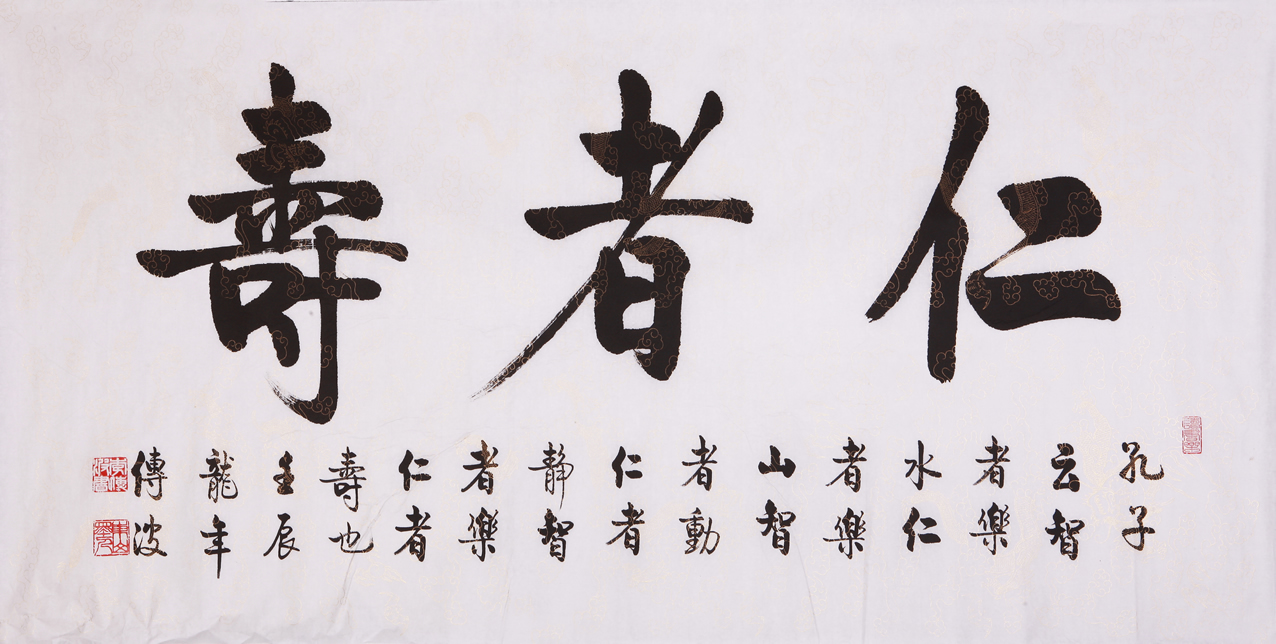 仁者壽
孔子
云智
者樂
水仁
者樂
山智
者動
仁者
静智
者樂
仁者
壽也
壬辰
龍年
傳波